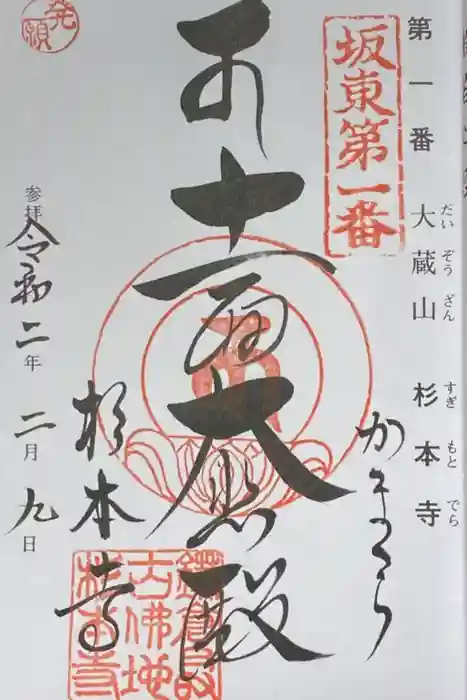 第一番 大蔵山 杉本寺
だいぞうざん すぎもとでら
坂東第一番
かまくら
十一面大悲殿
杉本寺
発願
参拝 令和二年二月九日
鎌倉最
古佛地
杉本寺